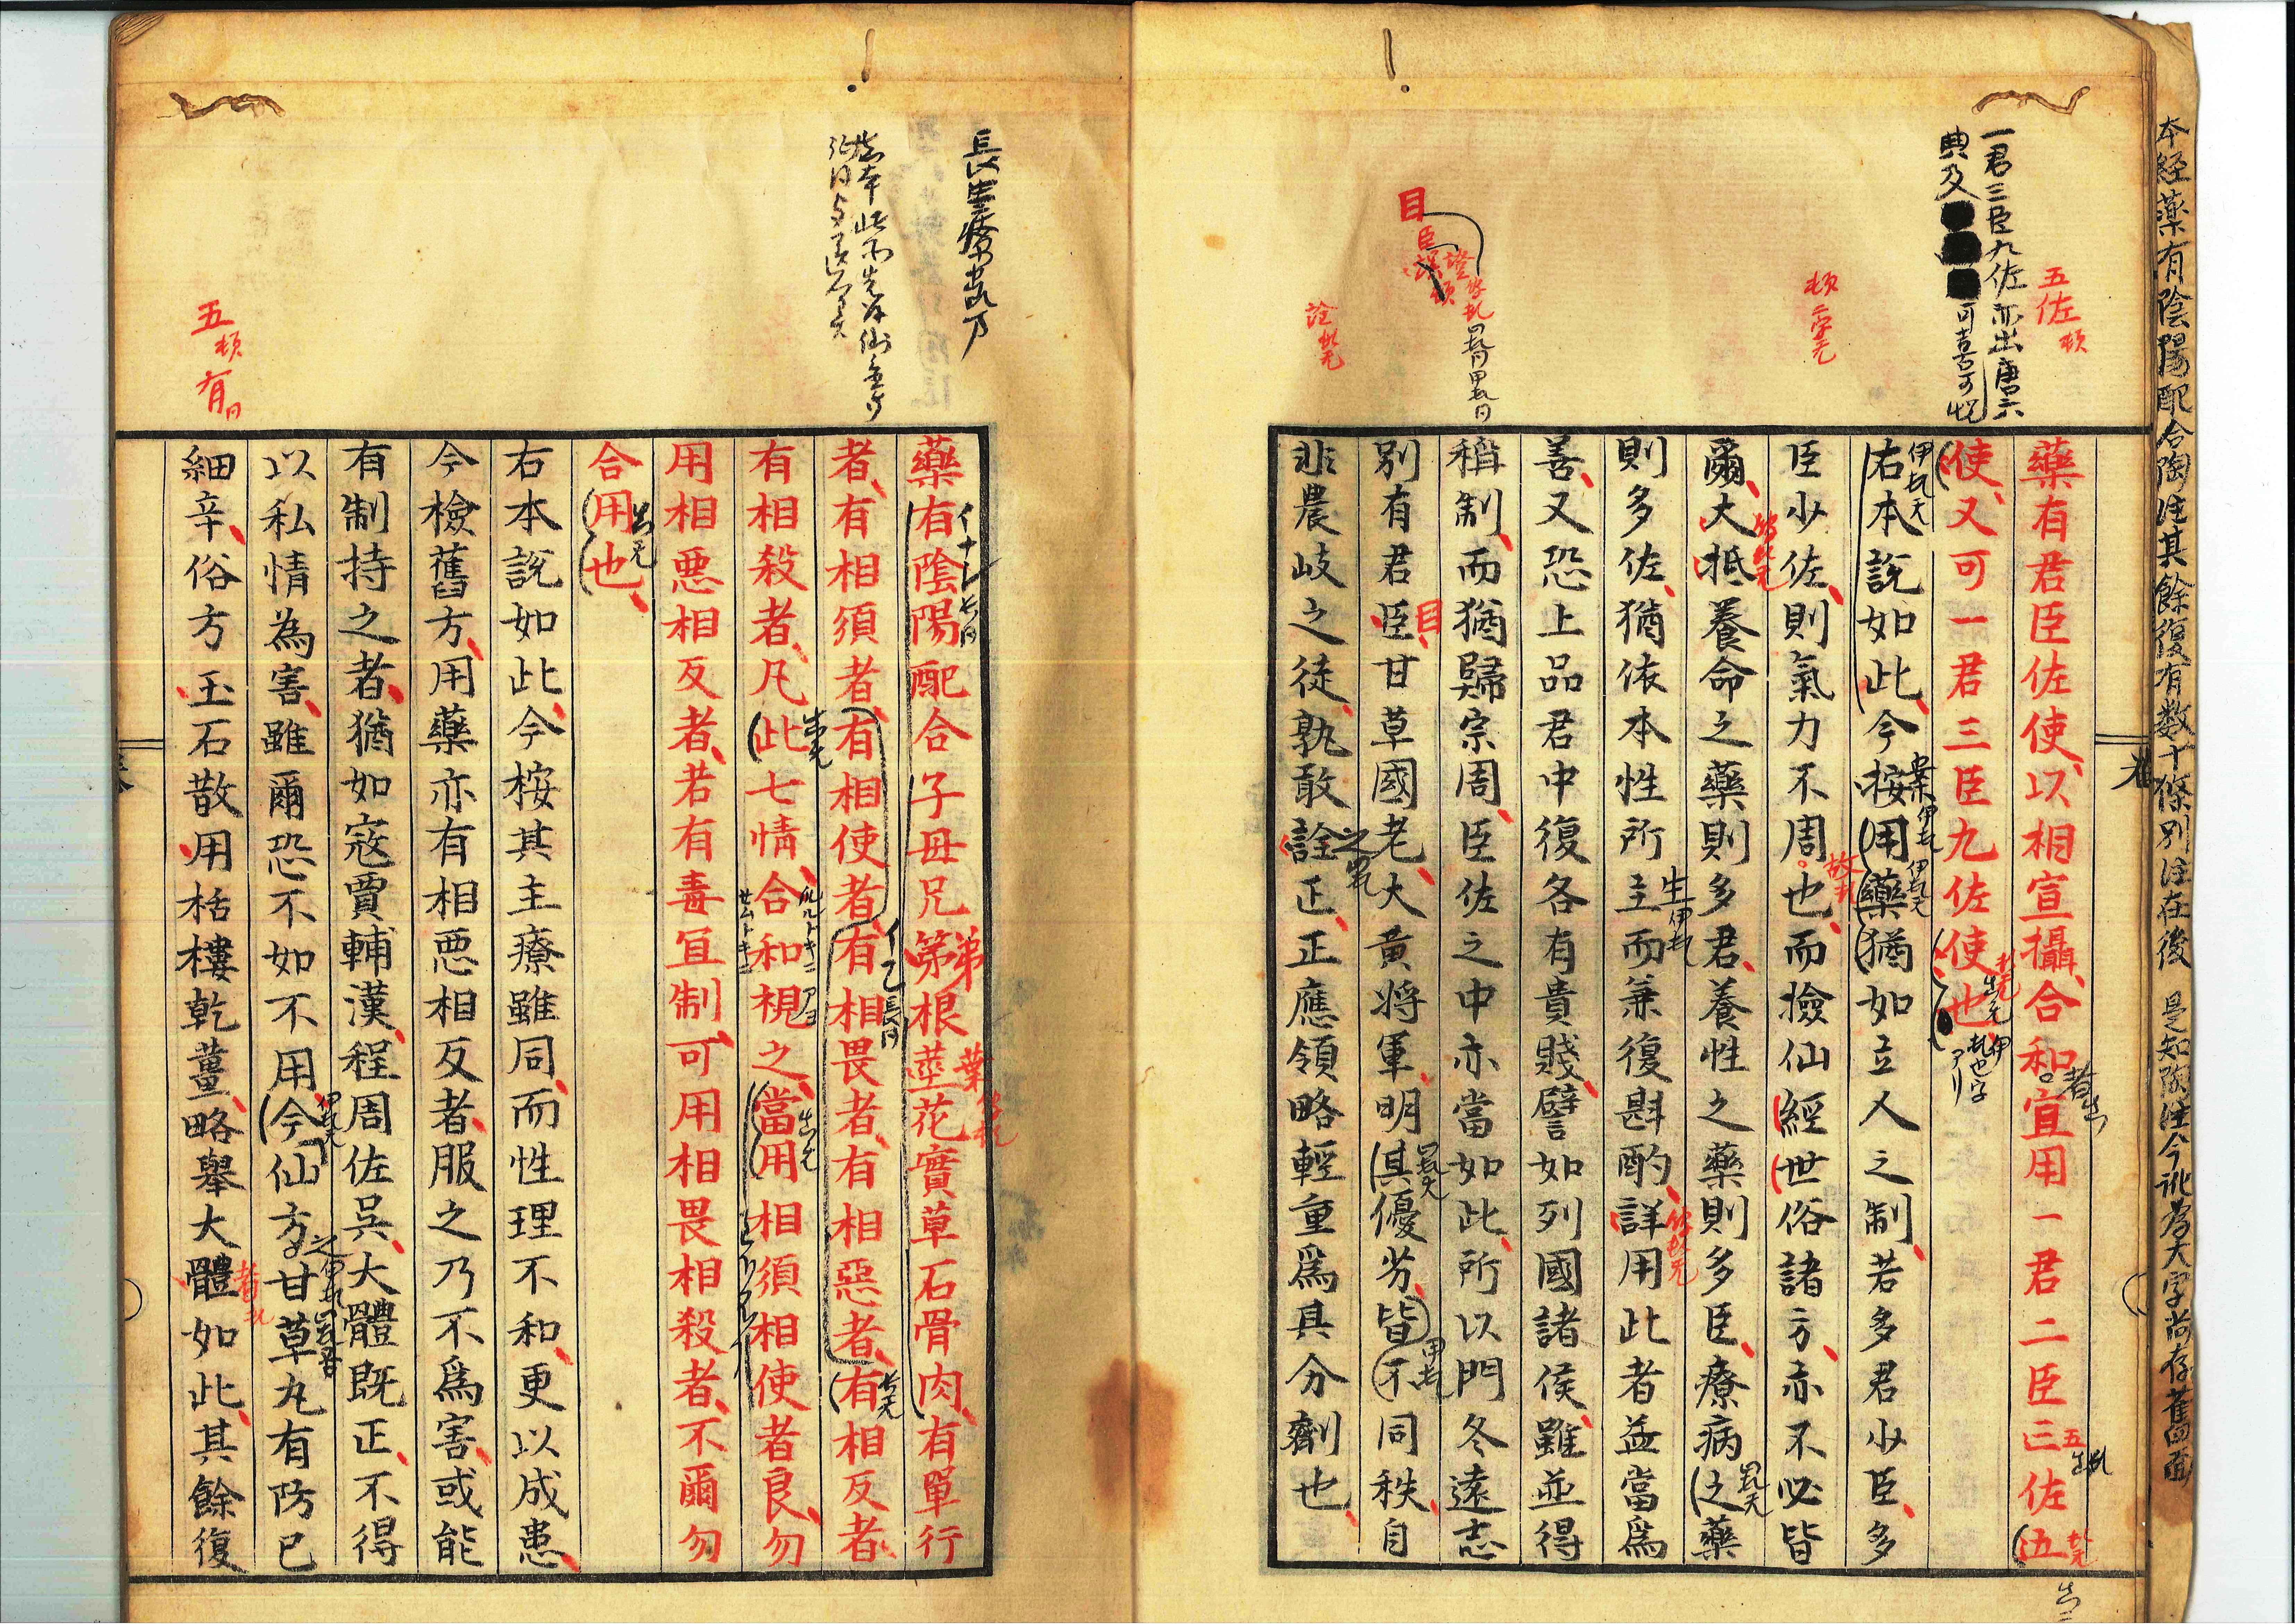 本經藥有陰陽配合陶注其餘復有数十條別注在後 是知陶注今訛為大字尚存舊面
五佐
一君三臣九佐亦出唐六
典及
可喜可
藥有君臣佐使以相宣攝合和宜用一君二臣三佐伍
使又可一君三臣九佐使也
右本說如此今桉用藥猶如立人之制若多君少臣多
臣少佐則氣力不周也而檢仙經世俗諸方亦不必皆
爾大抵養命之藥則多君養性之藥則多臣療病之藥
則多佐猶依本性所主而兼復斟酌詳用此者益當爲
善又恐上品君中復各有貴賤譬如列國諸侯雖並得
稱制而猶歸宗周臣佐之中亦當如此所以門冬遠志
別有君臣甘草國老大黃將軍明其優劣皆不同秩自
非農歧之徒孰敢詮正正應領略輕重爲其分劑也
目
長生療
藥有陰陽配合子母兄第根莖花實草石骨肉有單行
者有相須者有相使者有相畏者有相惡者有相反者
有相殺者凡此七情合和視之當用相須相使者良勿
用相惡相反者若有毒宜制可用相畏相殺者不爾勿
合用也
右本說如此今桉其主療雖同而性理不和更以成患
今檢舊方用藥亦有相惡相反者服之乃不爲害或能
有制持之者猶如寇賈輔漢程周佐吳大體既正不得
以私情為害雖爾恐不如不用今仙方甘草丸有防已
細辛俗方玉石散用栝樓乾薑略舉大體如此其餘復
五 有